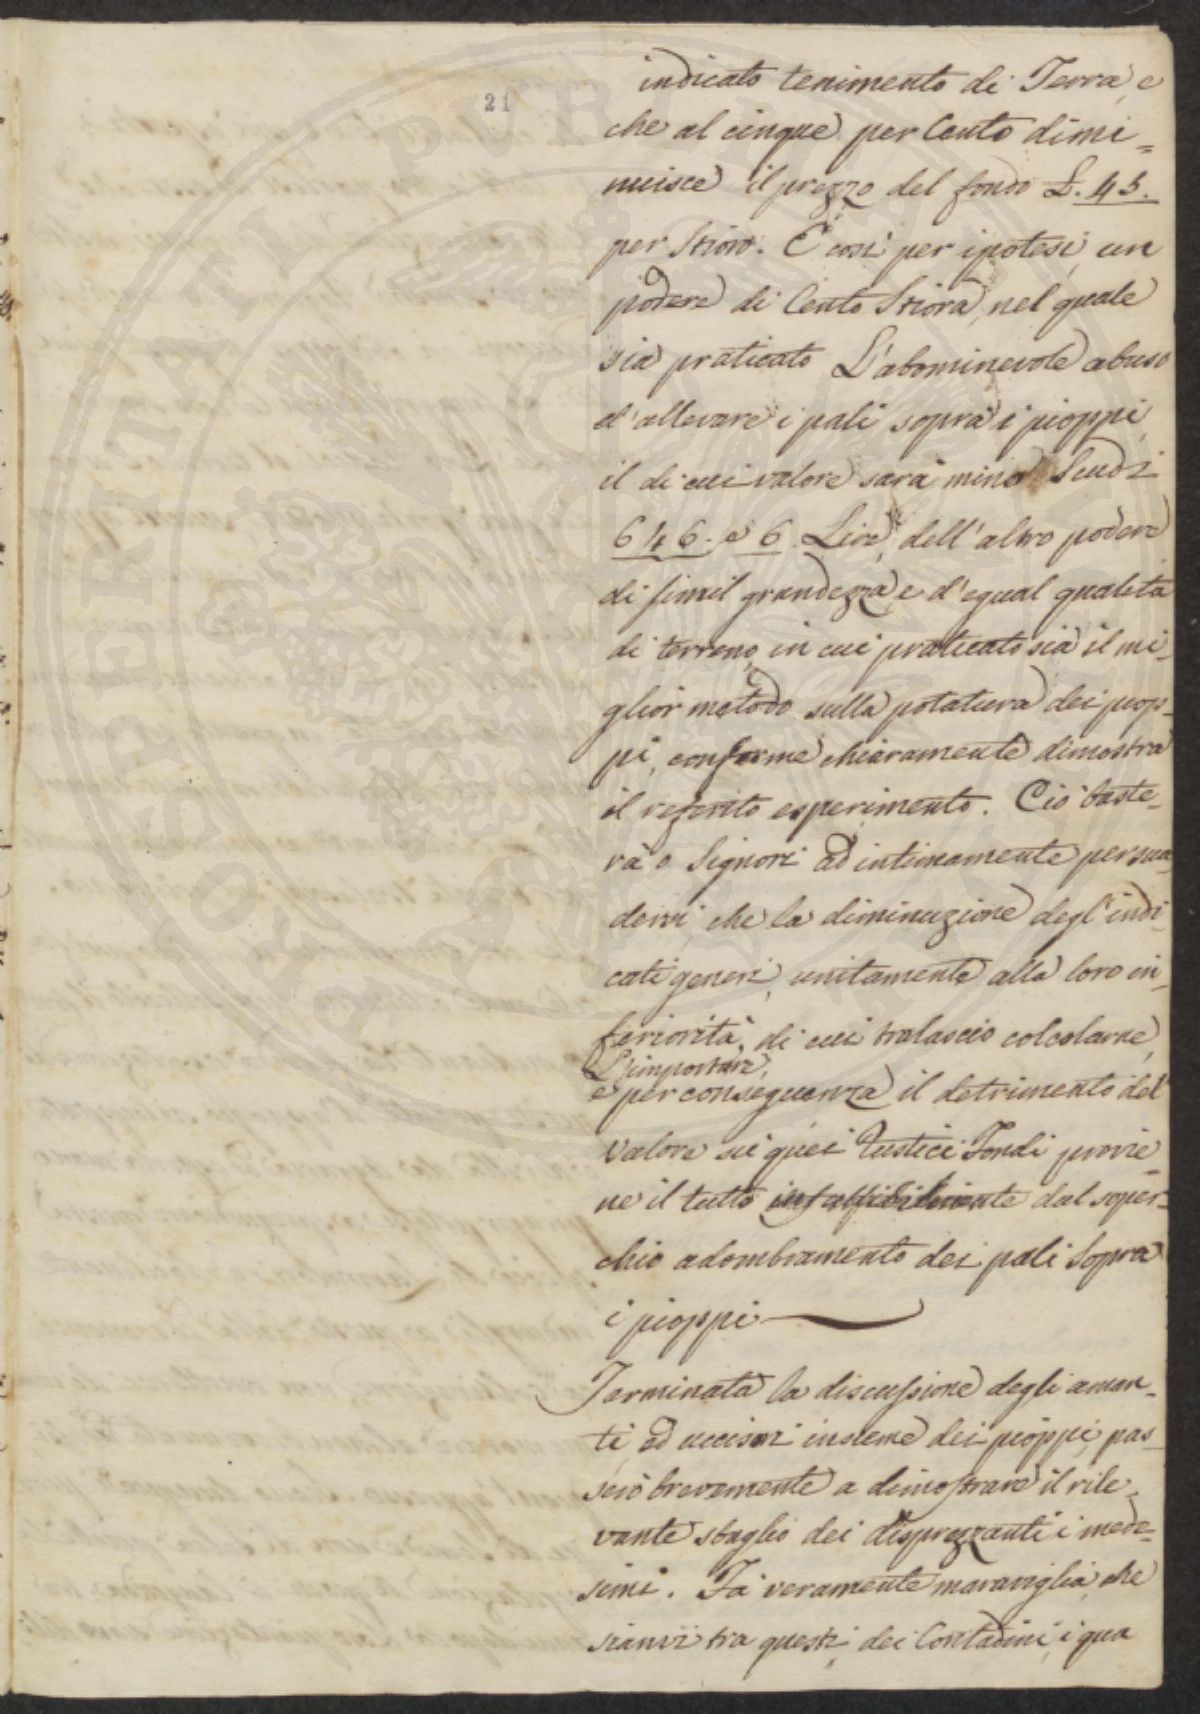 21
indicato tenimento di Terra, e
che al cinque per Cento dimi=
nuisce il prezzo del fondo £. 45.
per Stioro. E così per ipotesi, un
podere di Cento Stiora, nel quale
sia praticato L'abominevole abuso
d'allevare i pali sopra i pioppi,
il di cui valore sarà minor Scudi
646. e 6 Lire, dell'altro podere
di simil grandezza, e d'egual qualità
di terreno, in cui praticato sia il mi=
glior metodo sulla potatura dei piop=
pi, conforme chiaramente dimostra
il referito esperimento. Ciò baste=
rà o Signori ad intimamente persua
dervi che la diminuzione degl'indi
cati generi, unitamente alla loro in=
feriorità, di cui tralascio colcolarne
L'importare,
e per conseguenza il detrimento del
valore su quei Rustici Fondi provie=
ne il tutto infallibilmente dal soper=
chio adombramento dei pali Sopra
i pioppi
Terminata la discussione degli aman=
ti, ed uccisori insieme dei pioppi, pas=
serò brevemente a dimostrare il rile=
vante sbaglio dei disprezzanti i mede=
simi. Fà veramente maraviglia, che
sianvi tra questi, dei Contadini, i qua
PROSPERITATI PUBLICAE